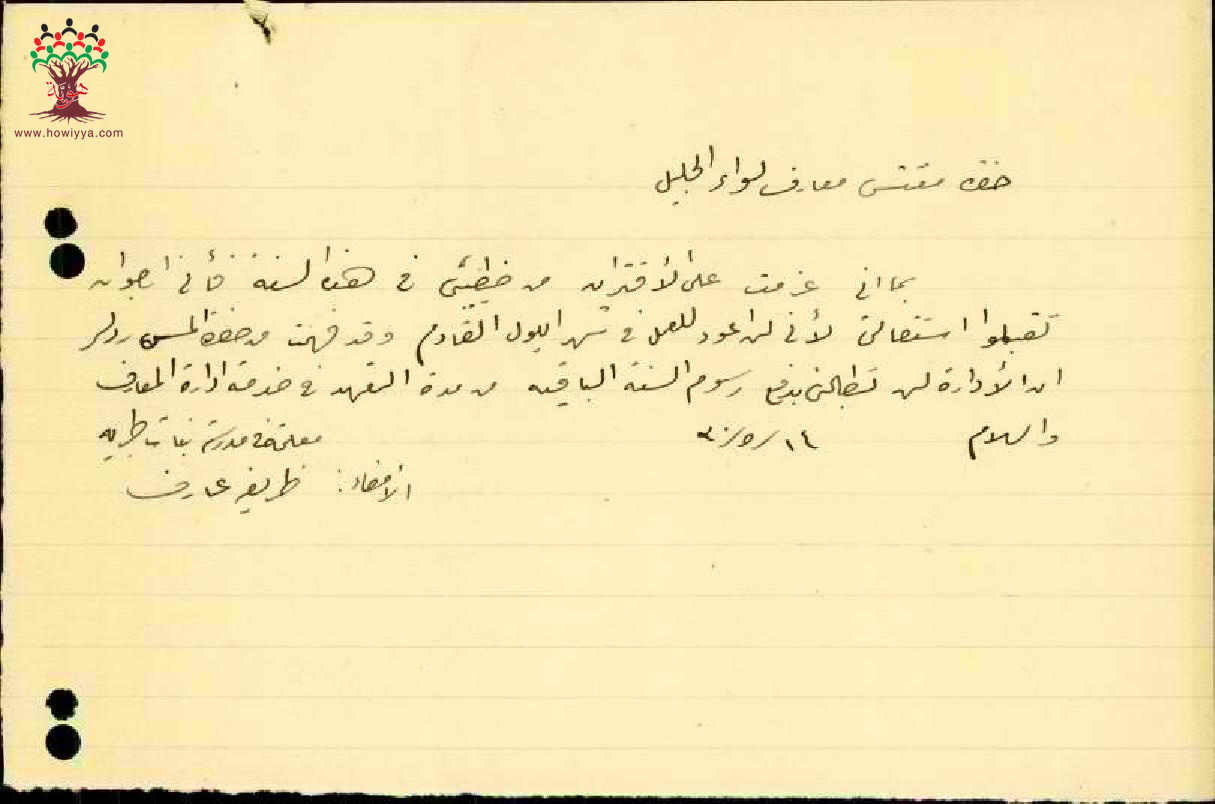 هوية
www.howiyya.com
حضرة مفتش معارف لواء الجليل
بما اني عزمت على الأقتران من خطيبتي في هذه السنة فأني ارجو ان
تقبلوا استقالتي لأني لن اعود للعمل في شهر ايلول القادم وقد فهمت من حضرة المس ردلر
ان الأدارة لن تطالبني بدفع رسوم السنة الباقية من مدة التعهد في خدمة ادارة المعارف
والسلام
معلمة في مدرسة بنات طبريه
الأمضاء: ظريفه عارف